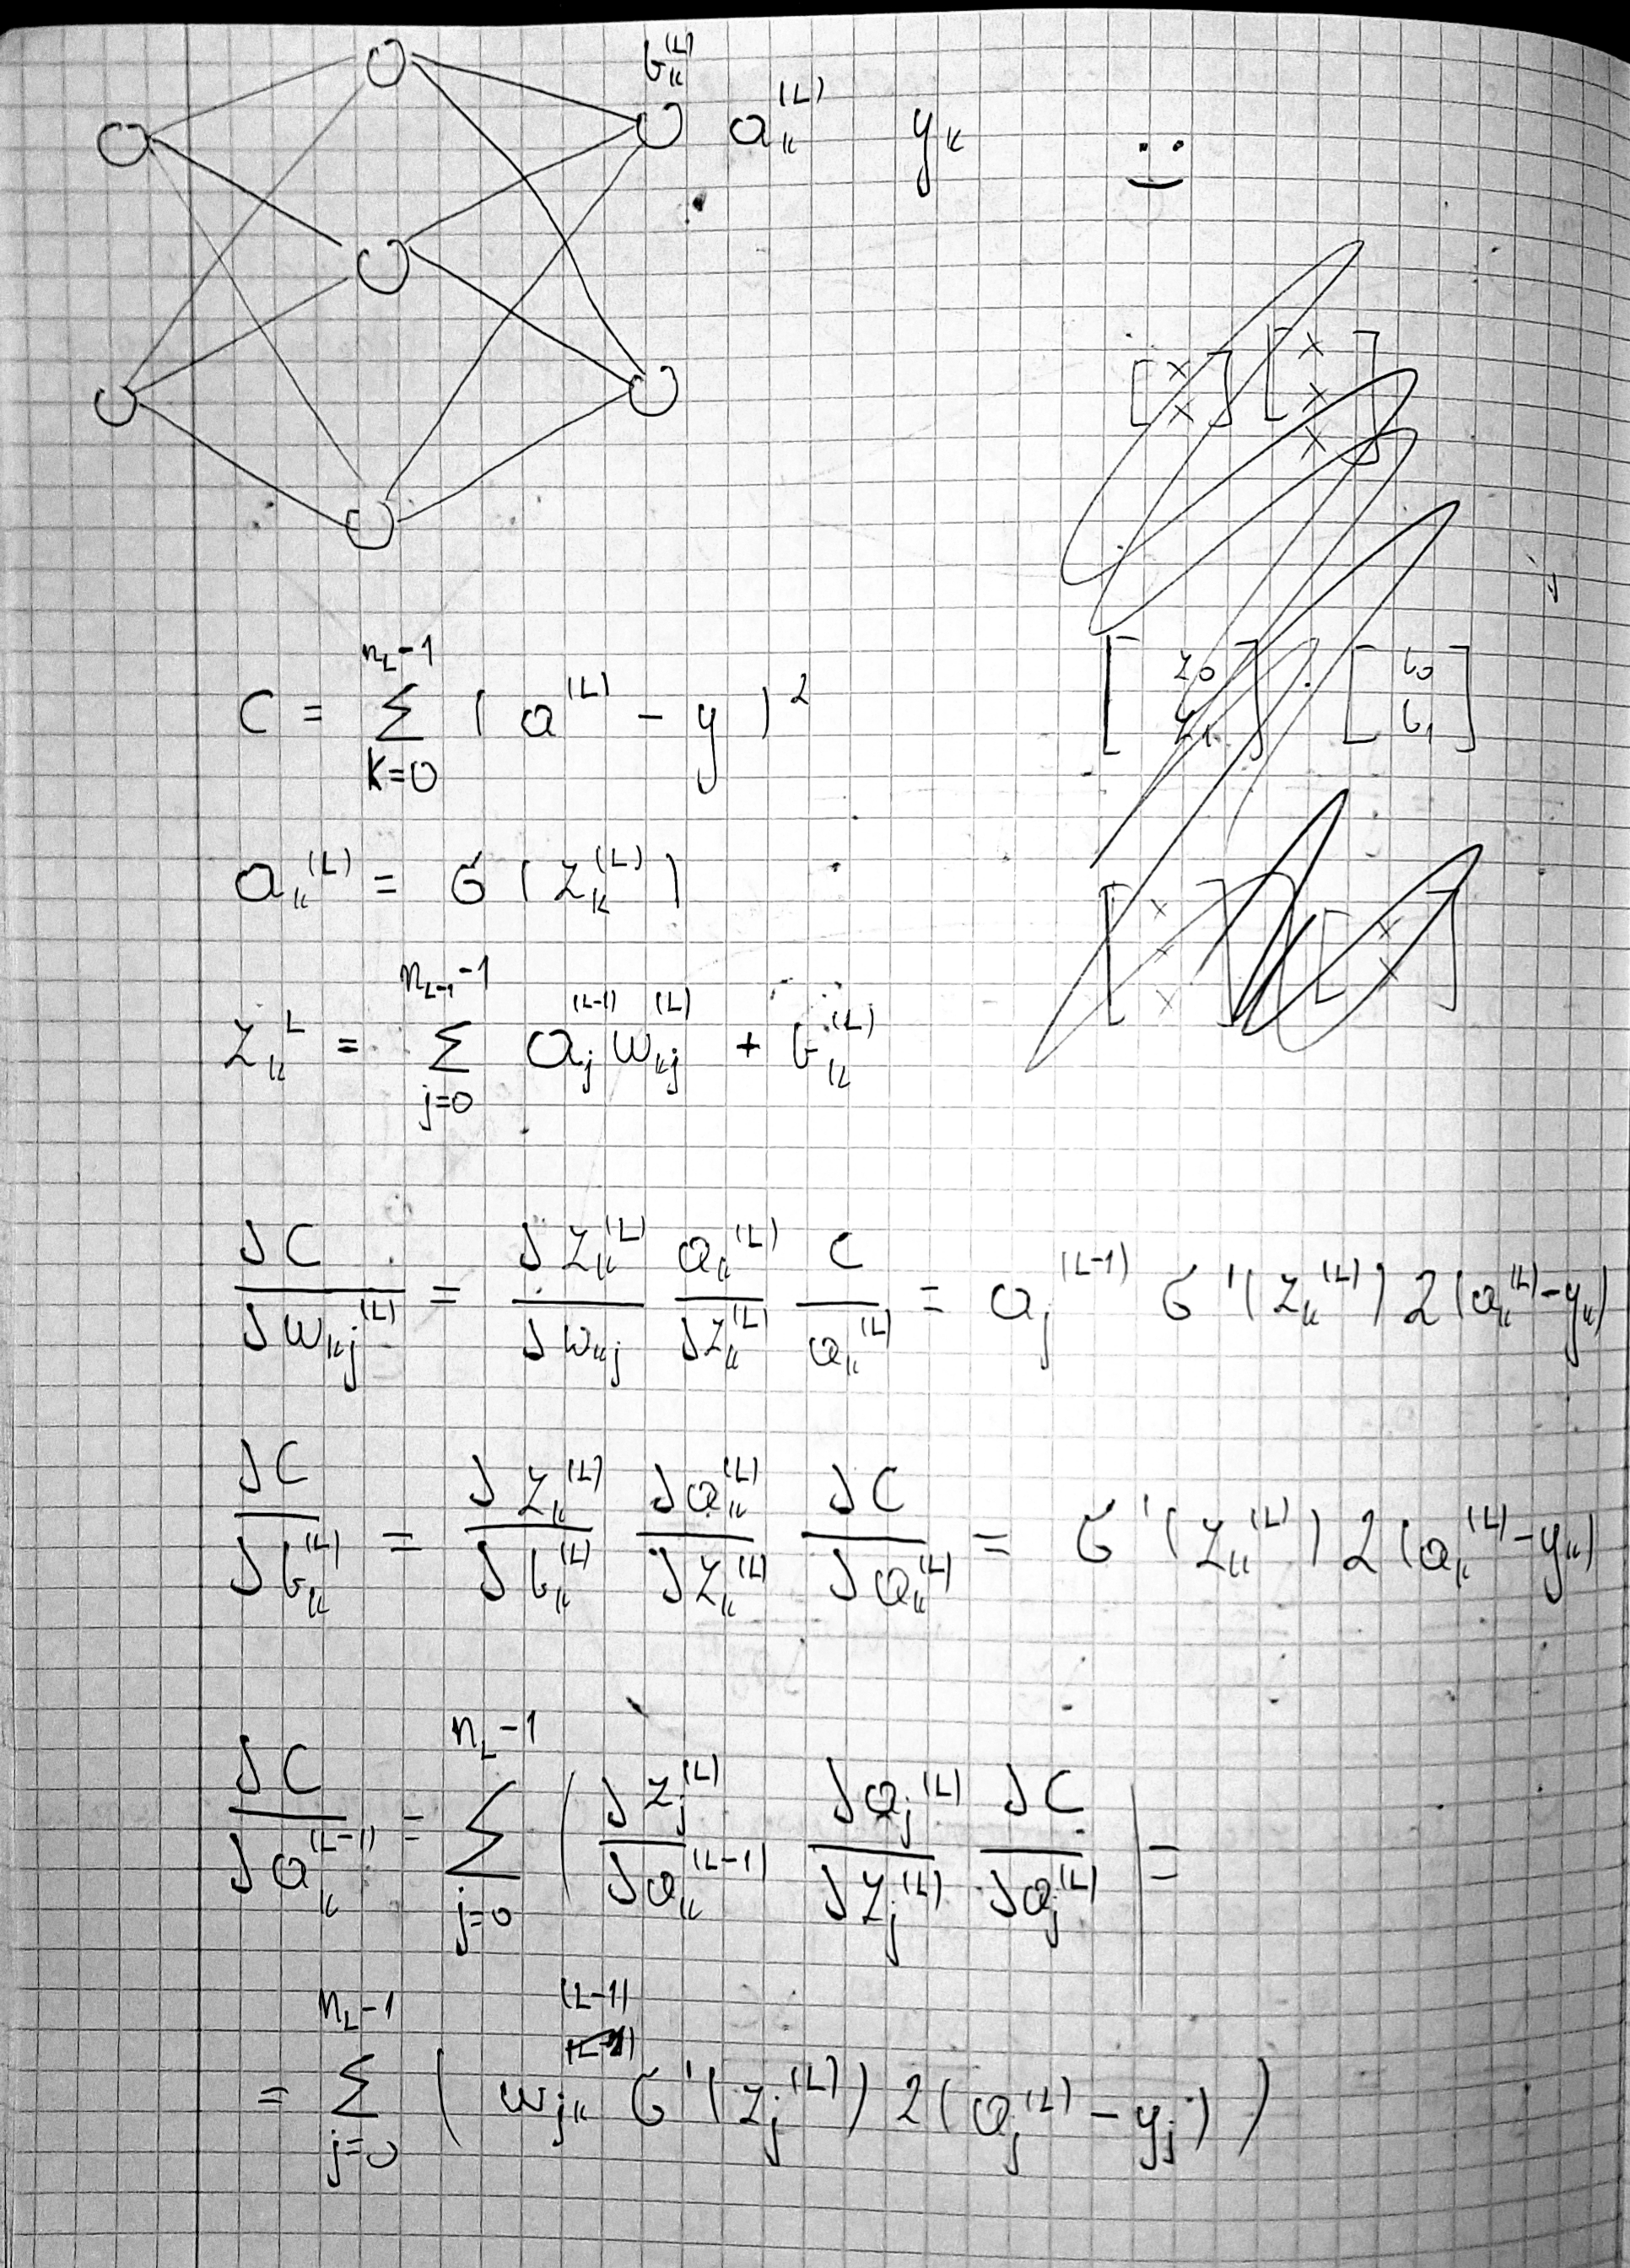 b_k^(L)
a_k^(L) y_k
[x x] [x x x]
[z_0 z_1] · [b_0 b_1]
C = Σ_{k=0}^{n_L-1} (a^(L) - y)^2
a_k^(L) = σ(z_k^(L))
[x x x] [x x]
z_k^L = Σ_{j=0}^{n_{L-1}-1} a_j^(L-1) w_kj^(L) + b_k^(L)
∂C/∂w_kj^(L) = ∂z_k^(L)/∂w_kj a_k^(L)/∂z_k^(L) C/a_k^(L) = a_j^(L-1) σ'(z_k^(L)) 2(a_k^(L) - y_k)
∂C/∂b_k^(L) = ∂z_k^(L)/∂b_k^(L) ∂a_k^(L)/∂z_k^(L) ∂C/∂a_k^(L) = σ'(z_k^(L)) 2(a_k^(L) - y_k)
∂C/∂a_k^(L-1) = Σ_{j=0}^{n_L-1} (∂z_j^(L)/∂a_k^(L-1) ∂a_j^(L)/∂z_j^(L) ∂C/∂a_j^(L)) =
= Σ_{j=0}^{n_L-1} (w_jk^(L-1) σ'(z_j^(L)) 2(a_j^(L) - y_j))